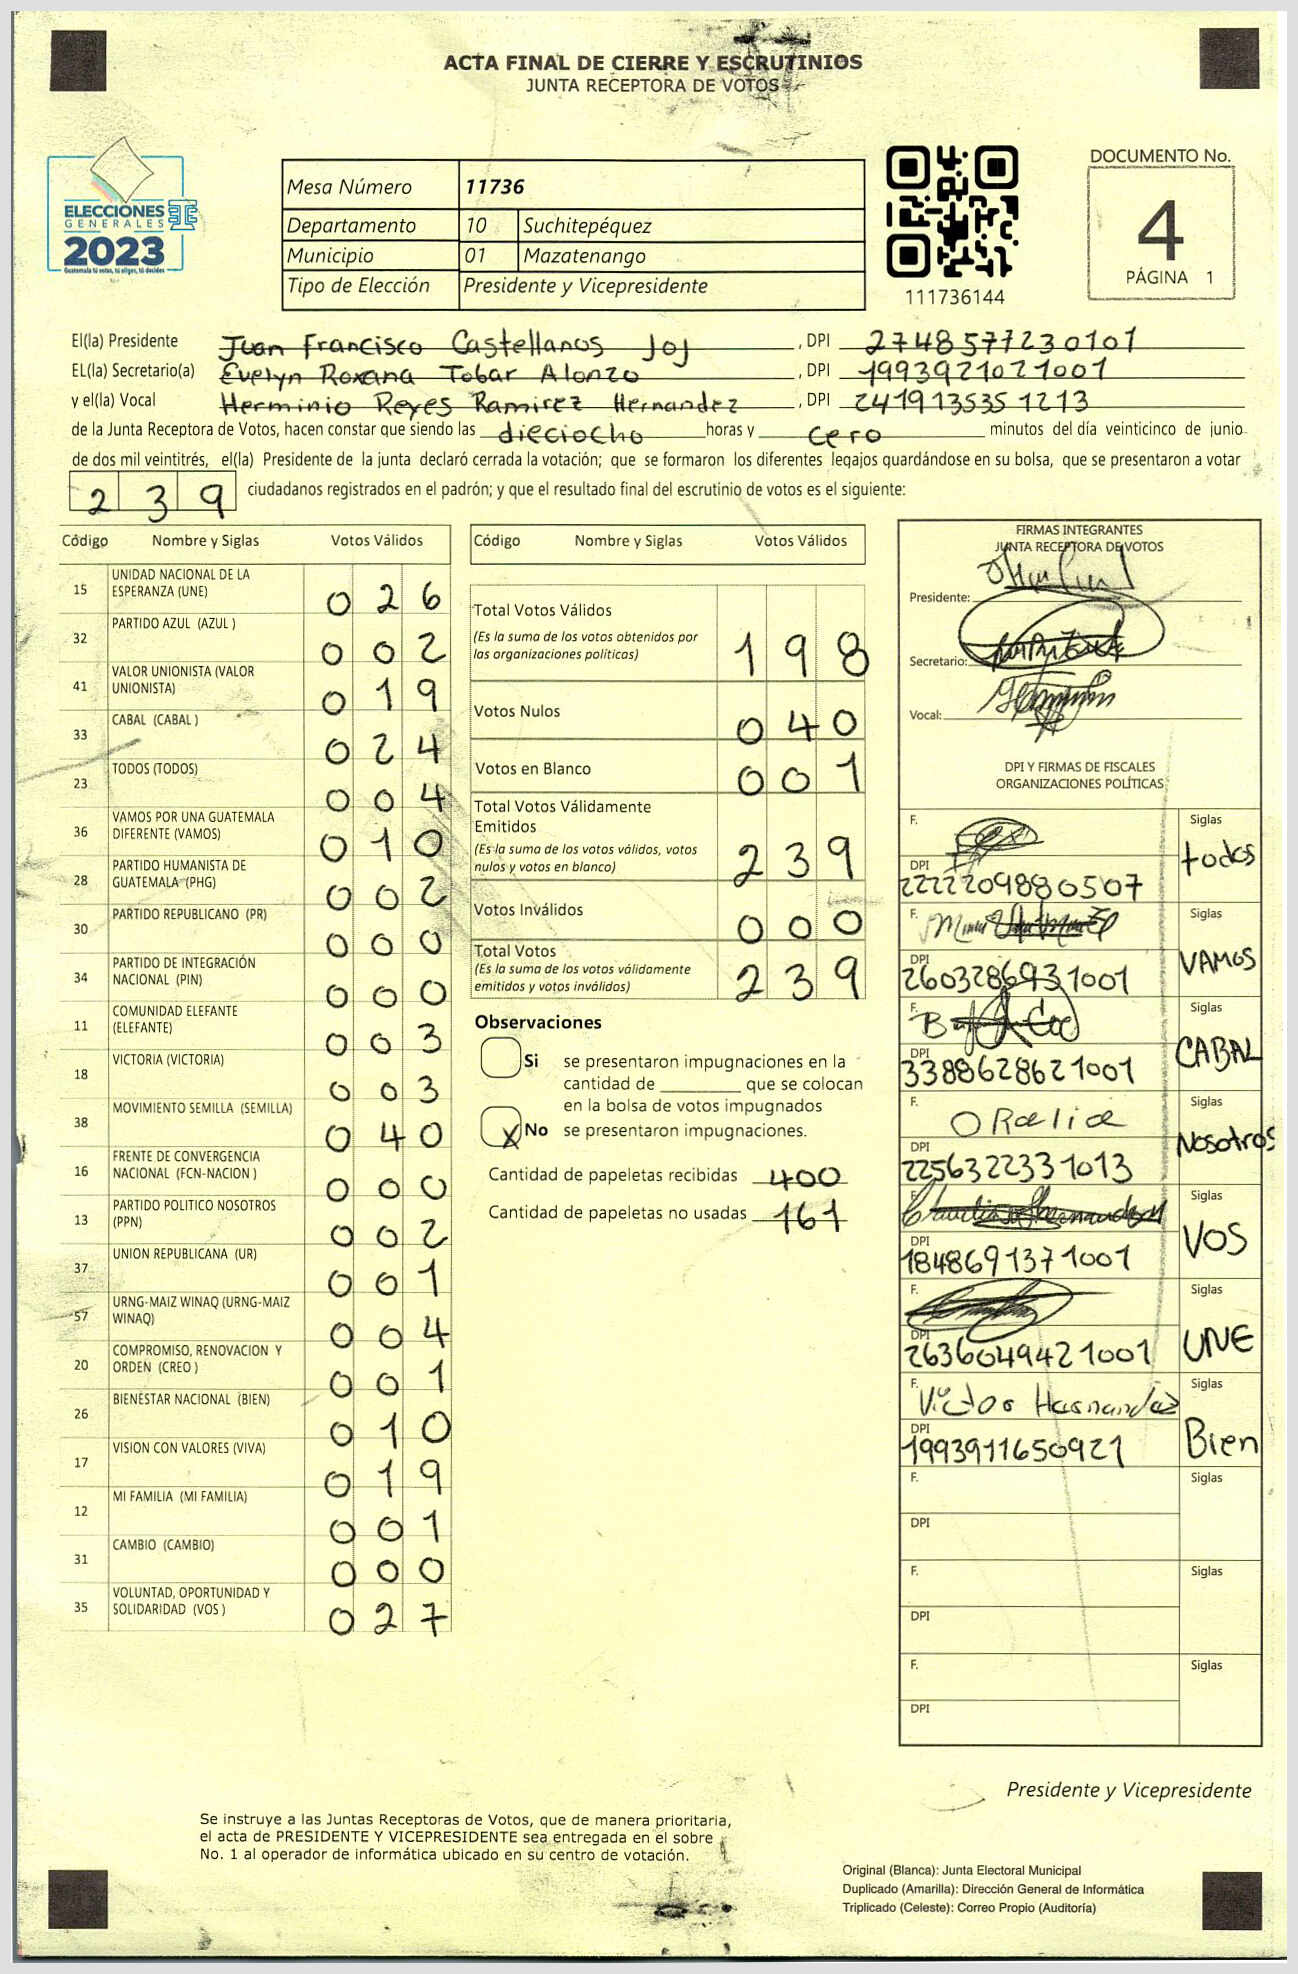 ACTA FINAL DE CIERRE Y ESCRUTINIOS
JUNTA RECEPTORA DE VOTOS
ELECCIONES
GENERALES
2023
Guatemala tú votas, tú eliges, tú decides
Mesa Número 11736
Departamento 10 Suchitepéquez
Municipio 01 Mazatenango
Tipo de Elección Presidente y Vicepresidente
111736144
DOCUMENTO No.
4
PÁGINA 1
El(la) Presidente Juan Francisco Castellanos Joj , DPI 2748577230101
EL(la) Secretario(a) Evelyn Roxana Tobar Alonzo , DPI 1993921021001
y el(la) Vocal Herminio Reyes Ramirez Hernandez , DPI 2419135351213
de la Junta Receptora de Votos, hacen constar que siendo las dieciocho horas y cero minutos del día veinticinco de junio
de dos mil veintitrés, el(la) Presidente de la junta declaró cerrada la votación; que se formaron los diferentes legajos guardándose en su bolsa, que se presentaron a votar
239 ciudadanos registrados en el padrón; y que el resultado final del escrutinio de votos es el siguiente:
Código Nombre y Siglas Votos Válidos
15 UNIDAD NACIONAL DE LA ESPERANZA (UNE) 026
32 PARTIDO AZUL (AZUL ) 002
41 VALOR UNIONISTA (VALOR UNIONISTA) 019
33 CABAL (CABAL ) 024
23 TODOS (TODOS) 004
36 VAMOS POR UNA GUATEMALA DIFERENTE (VAMOS) 010
28 PARTIDO HUMANISTA DE GUATEMALA (PHG) 002
30 PARTIDO REPUBLICANO (PR) 000
34 PARTIDO DE INTEGRACIÓN NACIONAL (PIN) 000
11 COMUNIDAD ELEFANTE (ELEFANTE) 003
18 VICTORIA (VICTORIA) 003
38 MOVIMIENTO SEMILLA (SEMILLA) 040
16 FRENTE DE CONVERGENCIA NACIONAL (FCN-NACION ) 000
13 PARTIDO POLITICO NOSOTROS (PPN) 002
37 UNION REPUBLICANA (UR) 001
57 URNG-MAIZ WINAQ (URNG-MAIZ WINAQ) 004
20 COMPROMISO, RENOVACION Y ORDEN (CREO ) 001
26 BIENESTAR NACIONAL (BIEN) 010
17 VISION CON VALORES (VIVA) 019
12 MI FAMILIA (MI FAMILIA) 001
31 CAMBIO (CAMBIO) 000
35 VOLUNTAD, OPORTUNIDAD Y SOLIDARIDAD (VOS ) 027
Código Nombre y Siglas Votos Válidos
Total Votos Válidos 198
(Es la suma de los votos obtenidos por
las organizaciones políticas)
Votos Nulos 040
Votos en Blanco 001
Total Votos Válidamente
Emitidos 239
(Es la suma de los votos válidos, votos
nulos y votos en blanco)
Votos Inválidos 000
Total Votos 239
(Es la suma de los votos válidamente
emitidos y votos inválidos)
Observaciones
Si se presentaron impugnaciones en la
cantidad de ________ que se colocan
en la bolsa de votos impugnados
X No se presentaron impugnaciones.
Cantidad de papeletas recibidas 400
Cantidad de papeletas no usadas 161
FIRMAS INTEGRANTES
JUNTA RECEPTORA DE VOTOS
Presidente:
Secretario:
Vocal:
DPI Y FIRMAS DE FISCALES
ORGANIZACIONES POLÍTICAS
F. Siglas
todos
DPI
2222209880507
F. Siglas
VAMOS
DPI
2603286931001
F. Siglas
CABAL
DPI
3388628621001
F. Oralia Siglas
Nosotros
DPI
2256322331013
F. Siglas
VOS
DPI
1848691371001
F. Siglas
UNE
DPI
2636049421001
F. Victor Hernandez Siglas
Bien
DPI
1993911650921
F. Siglas
DPI
F. Siglas
DPI
F. Siglas
DPI
Presidente y Vicepresidente
Se instruye a las Juntas Receptoras de Votos, que de manera prioritaria,
el acta de PRESIDENTE Y VICEPRESIDENTE sea entregada en el sobre
No. 1 al operador de informática ubicado en su centro de votación.
Original (Blanca): Junta Electoral Municipal
Duplicado (Amarilla): Dirección General de Informática
Triplicado (Celeste): Correo Propio (Auditoría)